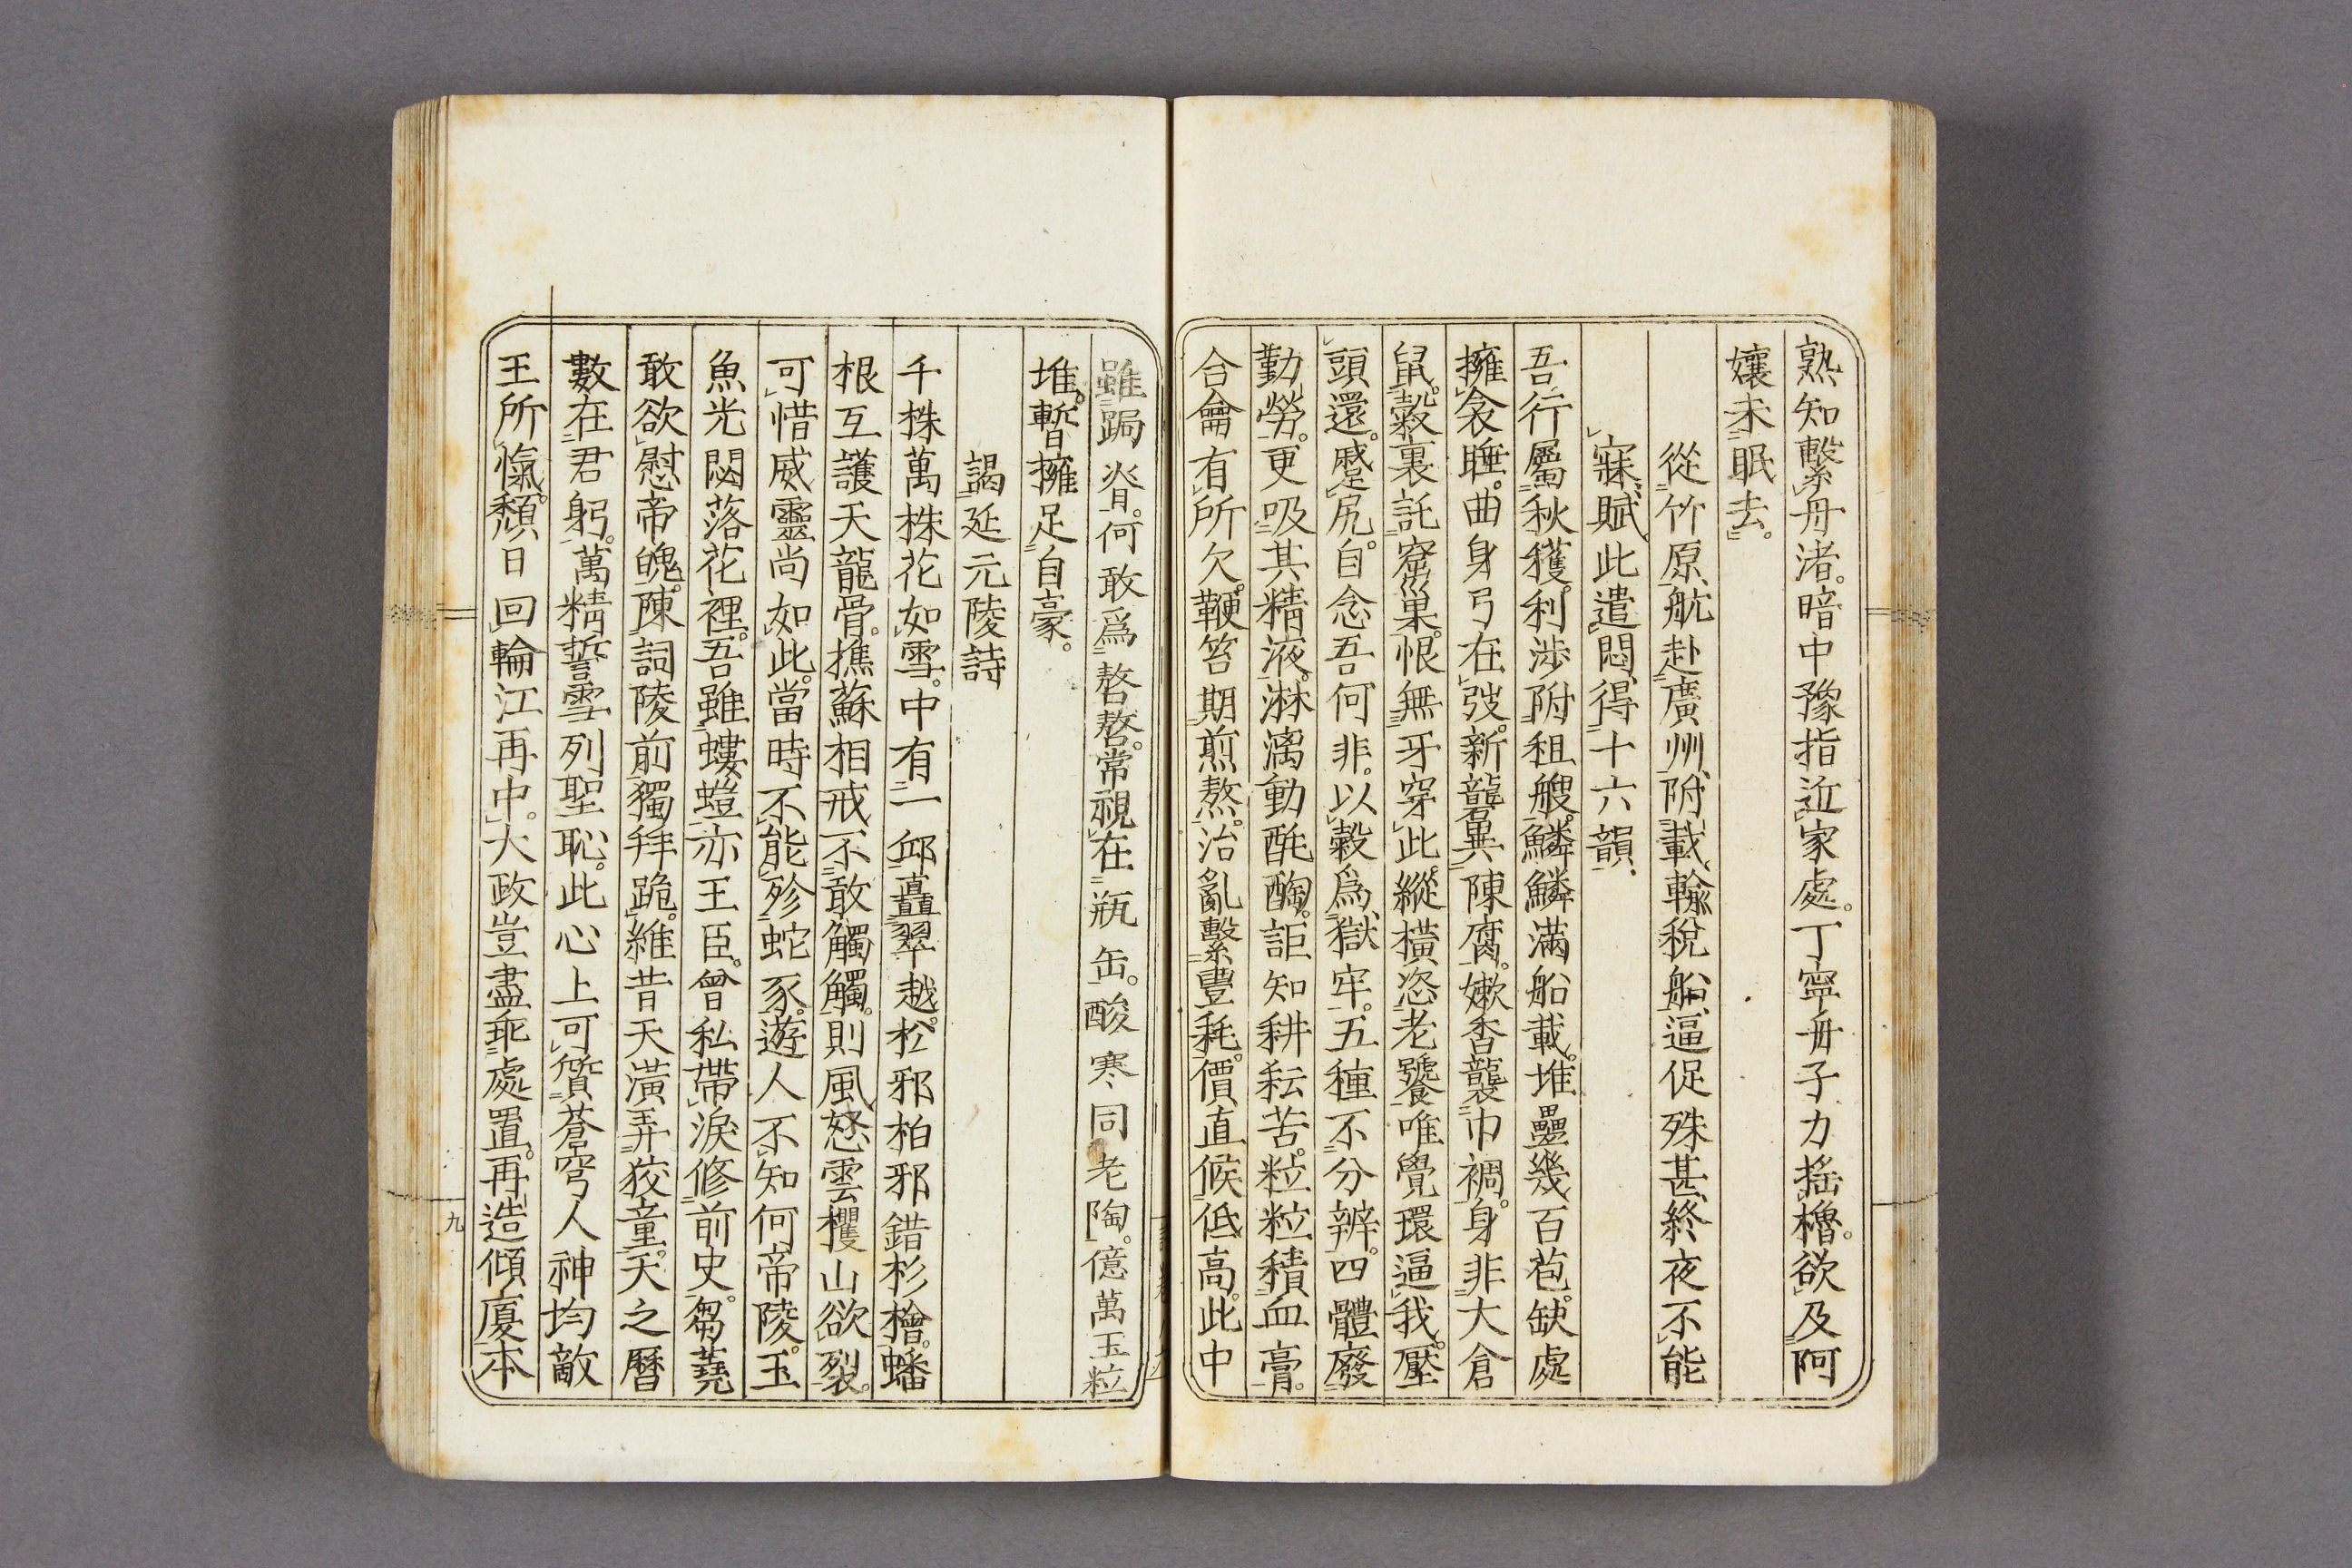 熟知繫舟渚。暗中豫指近家處。丁寧舟子力搖櫓。欲及阿
孃未眠去。
從竹原航赴廣州附載輸稅船逼促殊甚終夜不能
寐賦此遣悶得十六韻
吾行屬秋穫。利涉附租艘。鱗鱗滿船載。堆壘幾百苞。缺處
擁衾睡。曲身弓在弢。新礱異陳腐。嫩香襲巾裯。身非大倉
鼠。穀裏託窟巢。恨無牙穿此。縱橫恣老饕。唯覺環逼我。壓
頭還蹙尻。自念吾何非。以穀爲獄牢。五種不分辨。四體廢
勤勞。更吸其精液。淋漓動酕醄。詎知耕耘苦。粒粒積血膏。
合龠有所欠。鞭笞期煎熬。治亂繫豐耗。價直候低高。此中
雖跼脊。何敢爲嗸嗸。常視在瓶缶。酸寒同老陶。億萬玉粒
堆。暫擁足自豪。
謁延元陵詩
千株萬株花如雪。中有一邱矗翠越。松邪柏邪錯杉檜。蟠
根互護天龍骨。樵蘇相戒不敢觸。觸則風怒雲攫山欲裂。
可惜威靈尚如此。當時不能殄蛇豕。遊人不知何帝陵。玉
魚光閟落花裡。吾雖螻螘亦王臣。曾私帶淚修前史。芻蕘
敢欲慰帝魄。陳詞陵前獨拜跪。維昔天潢弄狡童。天之曆
數在君躬。萬精誓雪列聖恥。此心上可質蒼穹。人神均敵
王所愾。頹日回輪江再中。大政豈盡乖處置。再造傾廈本
九